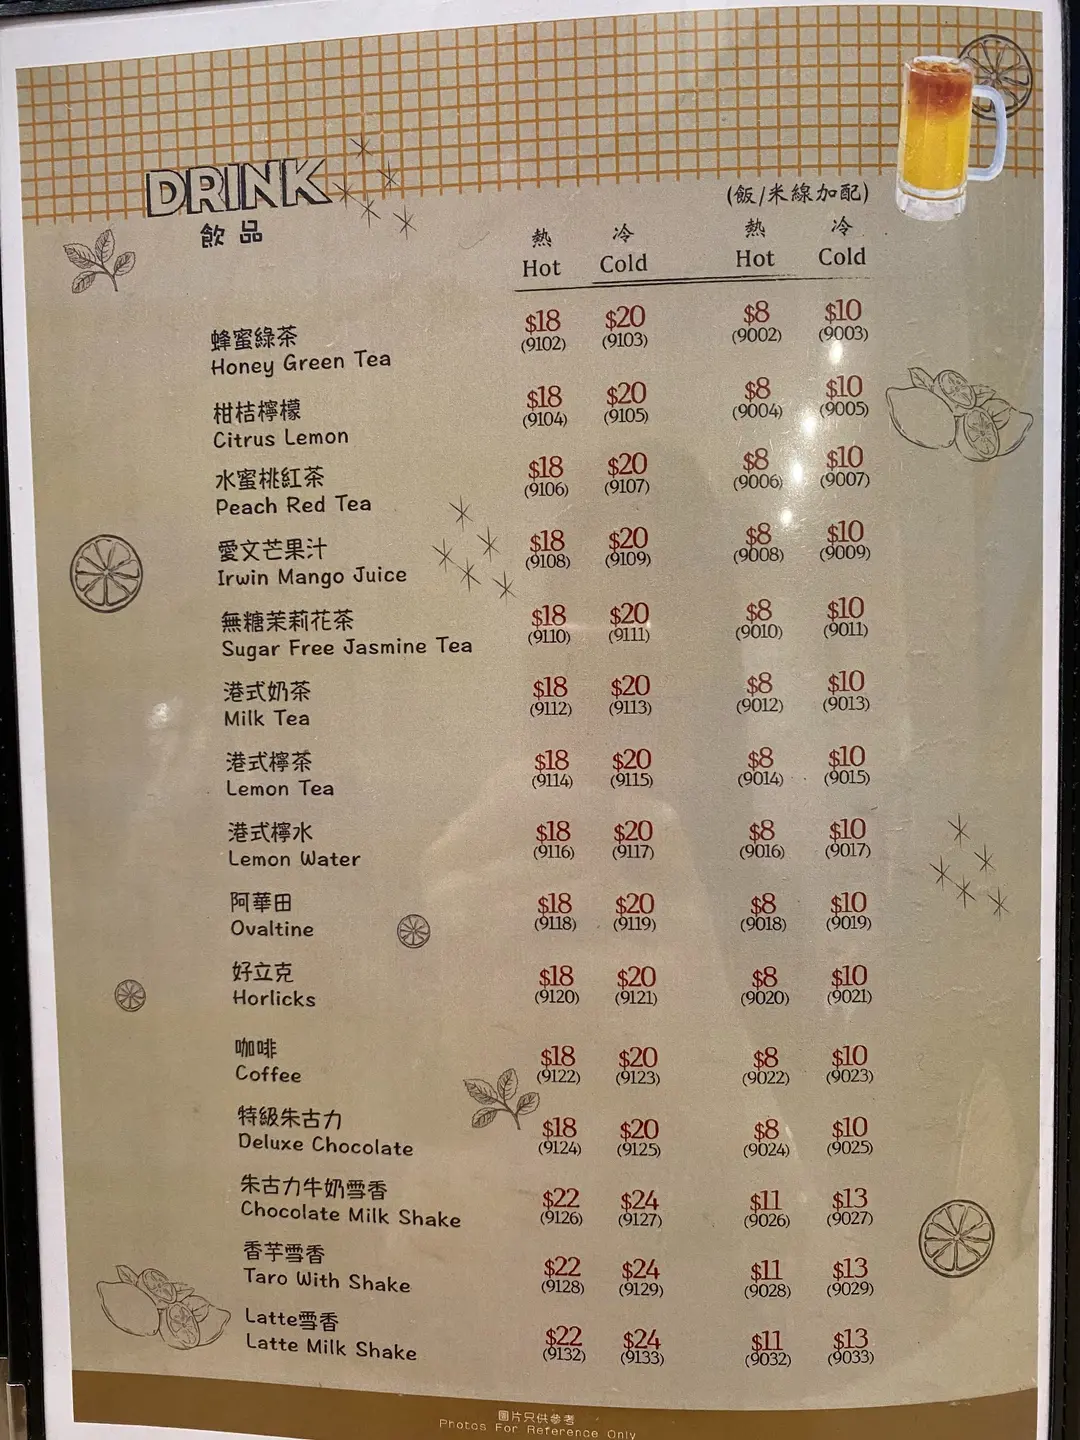 DRINK
飲品
(飯/米線加配)
熱 冷 熱 冷
Hot Cold Hot Cold
蜂蜜綠茶 $18 $20 $8 $10
Honey Green Tea (9102) (9103) (9002) (9003)
柑桔檸檬 $18 $20 $8 $10
Citrus Lemon (9104) (9105) (9004) (9005)
水蜜桃紅茶 $18 $20 $8 $10
Peach Red Tea (9106) (9107) (9006) (9007)
愛文芒果汁 $18 $20 $8 $10
Irwin Mango Juice (9108) (9109) (9008) (9009)
無糖茉莉花茶 $18 $20 $8 $10
Sugar Free Jasmine Tea (9110) (9111) (9010) (9011)
港式奶茶 $18 $20 $8 $10
Milk Tea (9112) (9113) (9012) (9013)
港式檸茶 $18 $20 $8 $10
Lemon Tea (9114) (9115) (9014) (9015)
港式檸水 $18 $20 $8 $10
Lemon Water (9116) (9117) (9016) (9017)
阿華田 $18 $20 $8 $10
Ovaltine (9118) (9119) (9018) (9019)
好立克 $18 $20 $8 $10
Horlicks (9120) (9121) (9020) (9021)
咖啡 $18 $20 $8 $10
Coffee (9122) (9123) (9022) (9023)
特級朱古力 $18 $20 $8 $10
Deluxe Chocolate (9124) (9125) (9024) (9025)
朱古力牛奶雪香 $22 $24 $11 $13
Chocolate Milk Shake (9126) (9127) (9026) (9027)
香芋雪香 $22 $24 $11 $13
Taro With Shake (9128) (9129) (9028) (9029)
Latte雪香 $22 $24 $11 $13
Latte Milk Shake (9132) (9133) (9032) (9033)
圖片只供參考
Photos For Reference Only